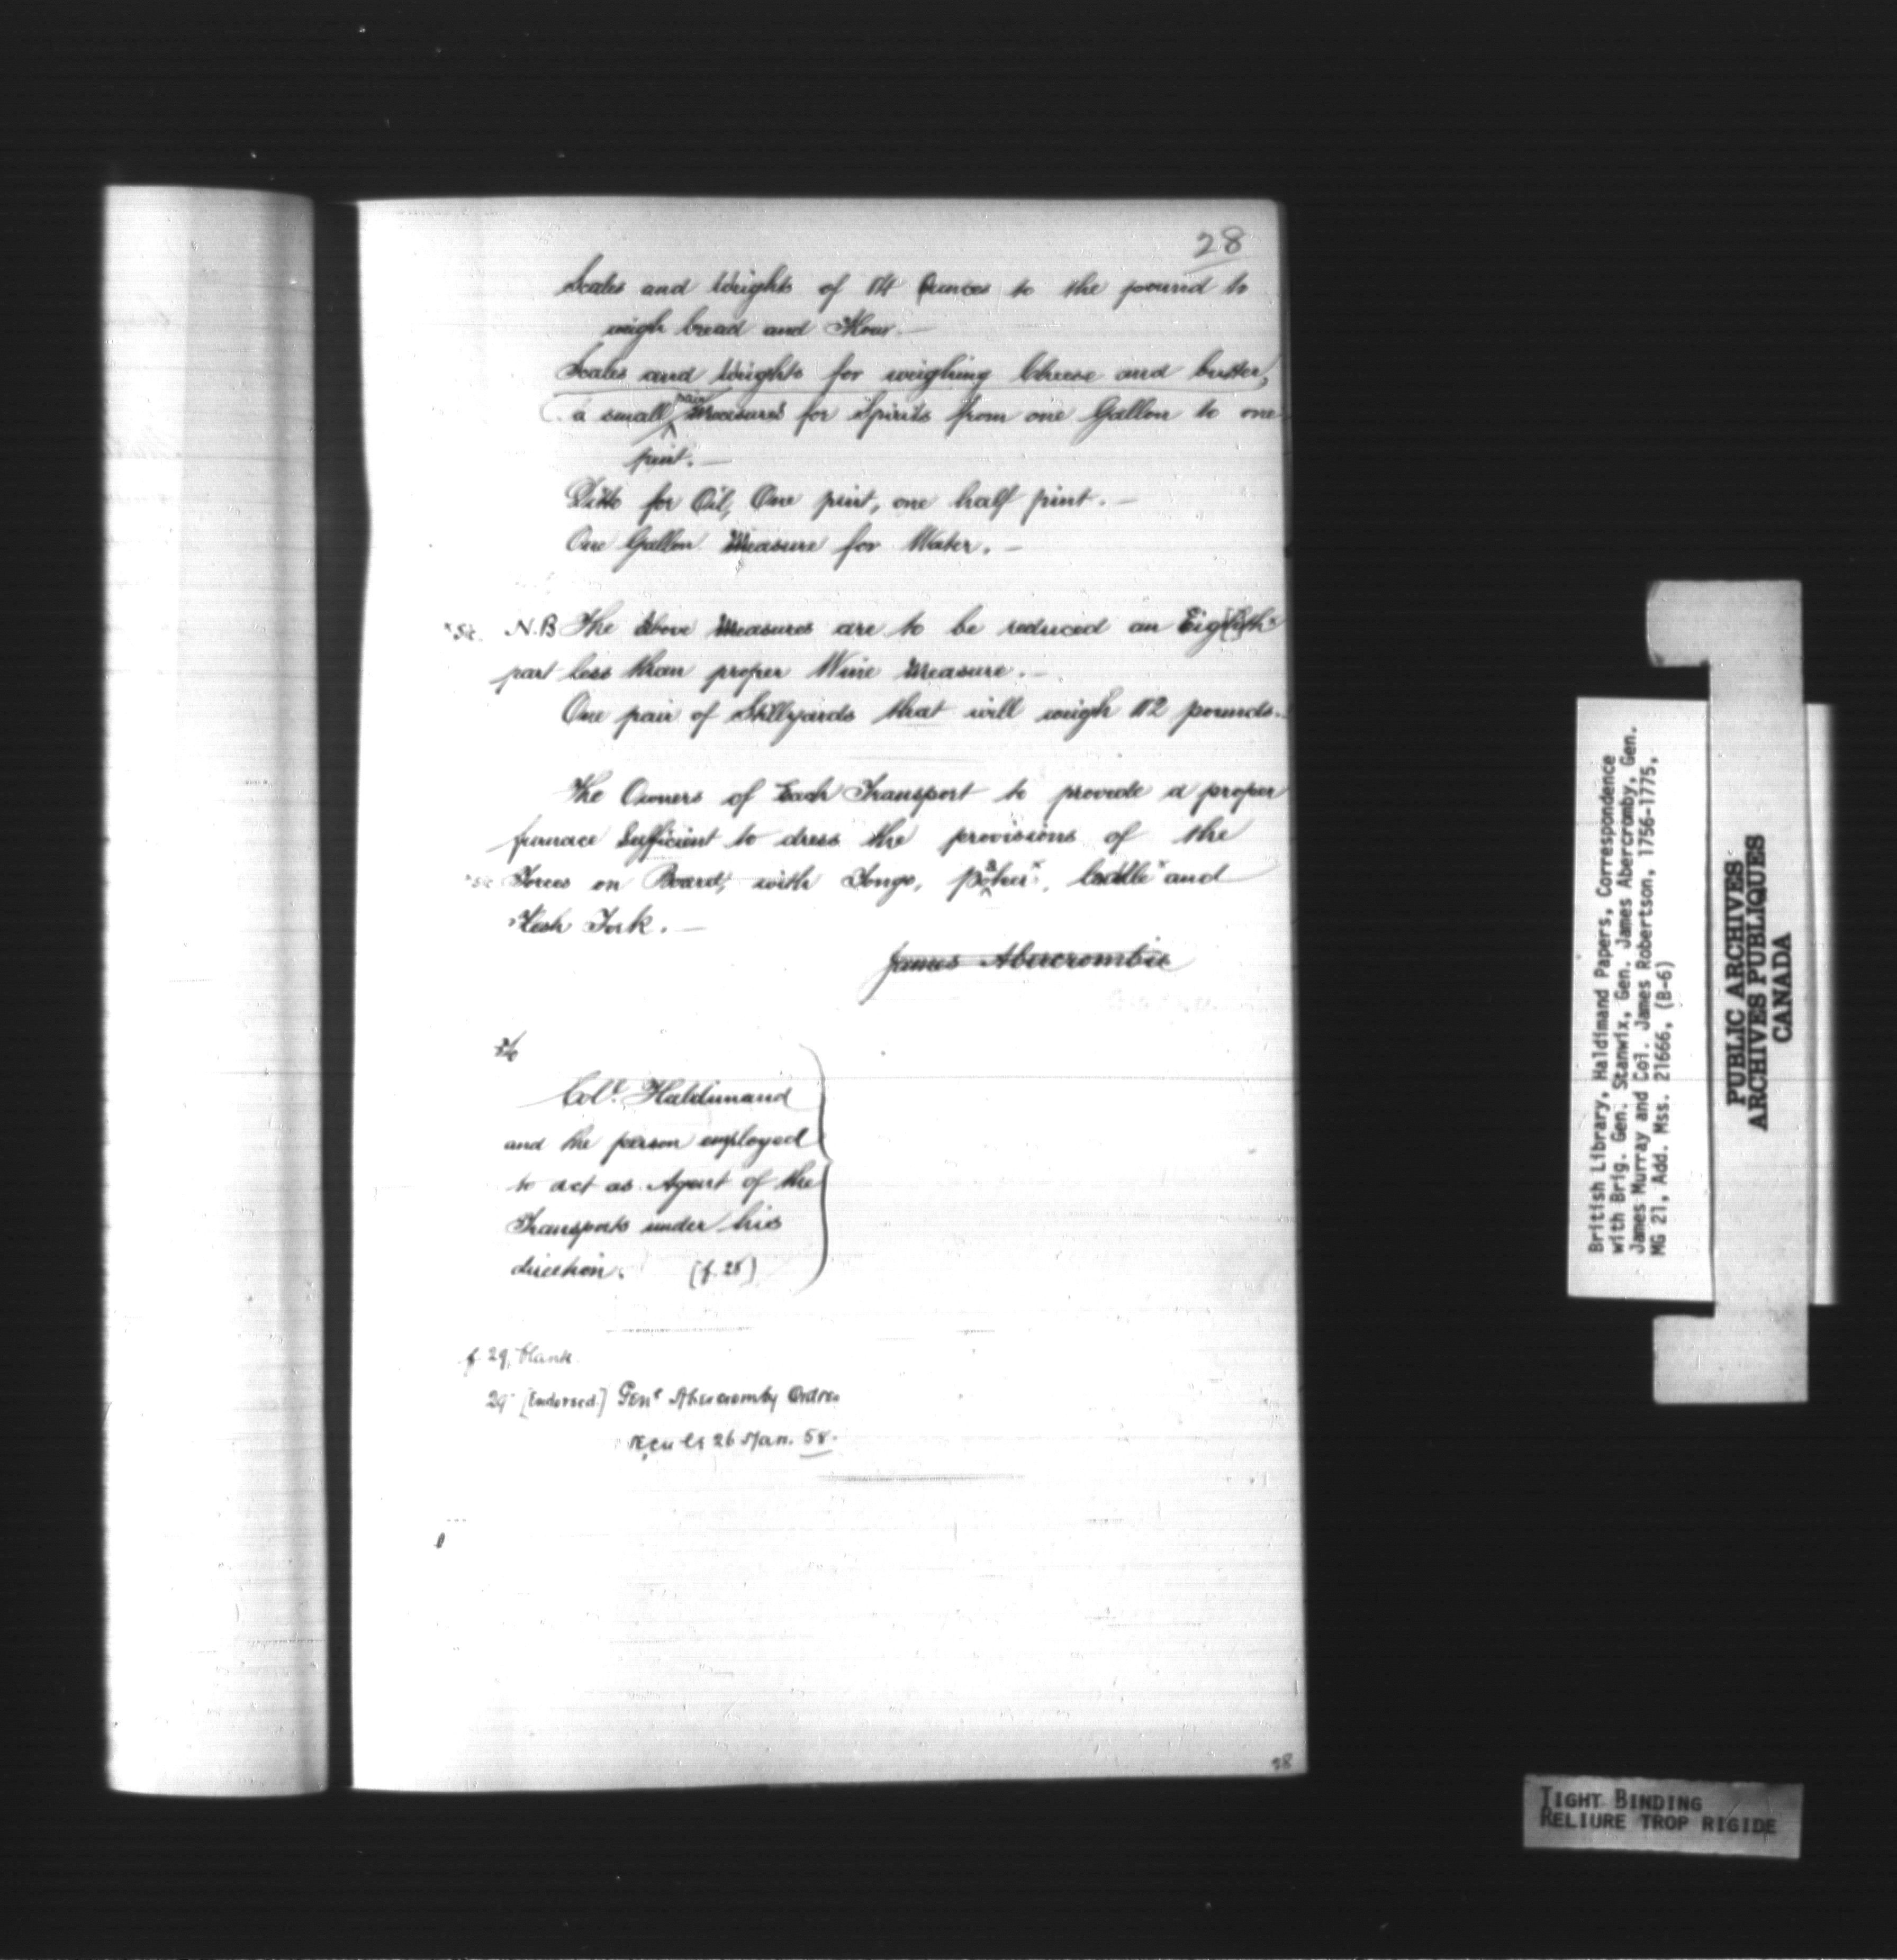 28
Scales and Weights of 14 Ounces to the pound to
weigh bread and Flour.—
Scales and Weights for weighing Cheese and butter,
a small pair Measures for Spirits from one Gallon to one
pint.—
Ditto for Oil, One pint, one half pint.—
One Gallon Measure for Water.—
*Sic. N.B The above Measures are to be reduced an Eig[h]th*
part less than proper Wine Measure.—
One pair of Stillyards that will weigh 112 pounds.
The Owners of Each Transport to provide a proper
furnace Sufficient to dress the provisions of the
*sic Forces on Board, with Tongs, poaker*, laddle* and
Flesh Fork.—
James Abercrombie
To
Colº. Haldimand
and the person employed
to act as Agent of the
Transports under his
direction. [f. 28]
f. 29, blank
29ᵛ [Endorsed.] Genˡ Abercromby Ordres
reçu le 26 Jan. 58.
28
British Library, Haldimand Papers, Correspondence
with Brig. Gen. Stanwix, Gen. James Abercromby, Gen.
James Murray and Col. James Robertson, 1756-1775,
MG 21, Add. Mss. 21666, (B-6)
PUBLIC ARCHIVES
ARCHIVES PUBLIQUES
CANADA
TIGHT BINDING
RELIURE TROP RIGIDE